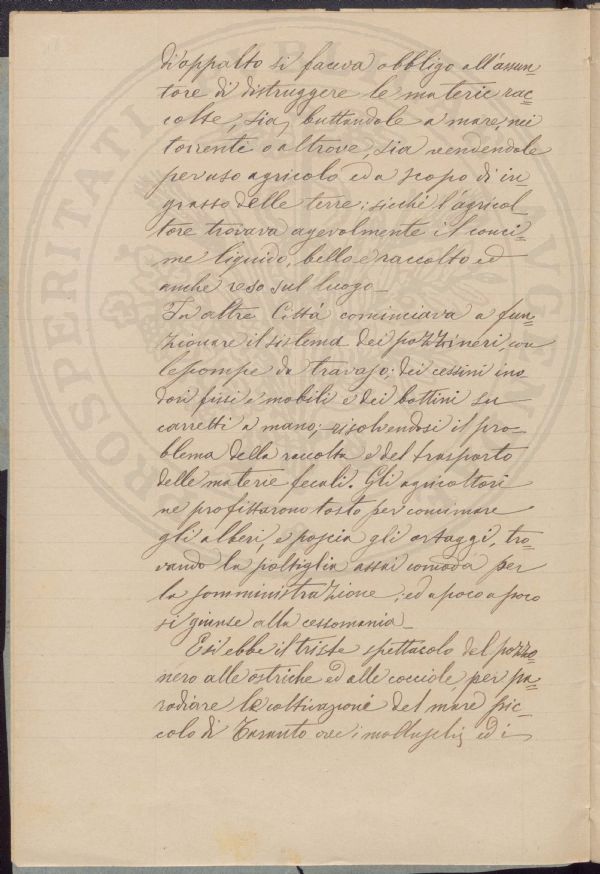 d'appalto si faceva obbligo all'assun=
tore di distruggere le materie rac=
colte, sia buttandole a mare, nei
torrenti o altrove, sia vendendole
per uso agricolo ed a scopo di in=
grasso delle terre; sicché l'agricol=
tore trovava agevolmente il conci=
me liquido, bello e raccolto ed
anche reso sul luogo_
In altre Città cominciava a fun=
zionare il sistema dei pozzi neri, con
le pompe da travaso; dei cessini ino
dori fissi e mobili e dei bottini su
carretti a mano; risolvendosi il pro=
blema della raccolta e del trasporto
delle materie fecali. Gli agricoltori
ne profittarono tosto per concimare
gli alberi, e poscia gli ortaggi, tro=
vando la poltiglia assai comoda per
la somministrazione; ed a poco a poco
si giunse alla cessomania_
E si ebbe il triste spettacolo del pozzo
nero alle ostriche ed alle cocciole, per pa=
rodiare la coltivazione del mare pic=
colo di Taranto ove i molluschi ed i
PROSPERITATI
AVGENDAE